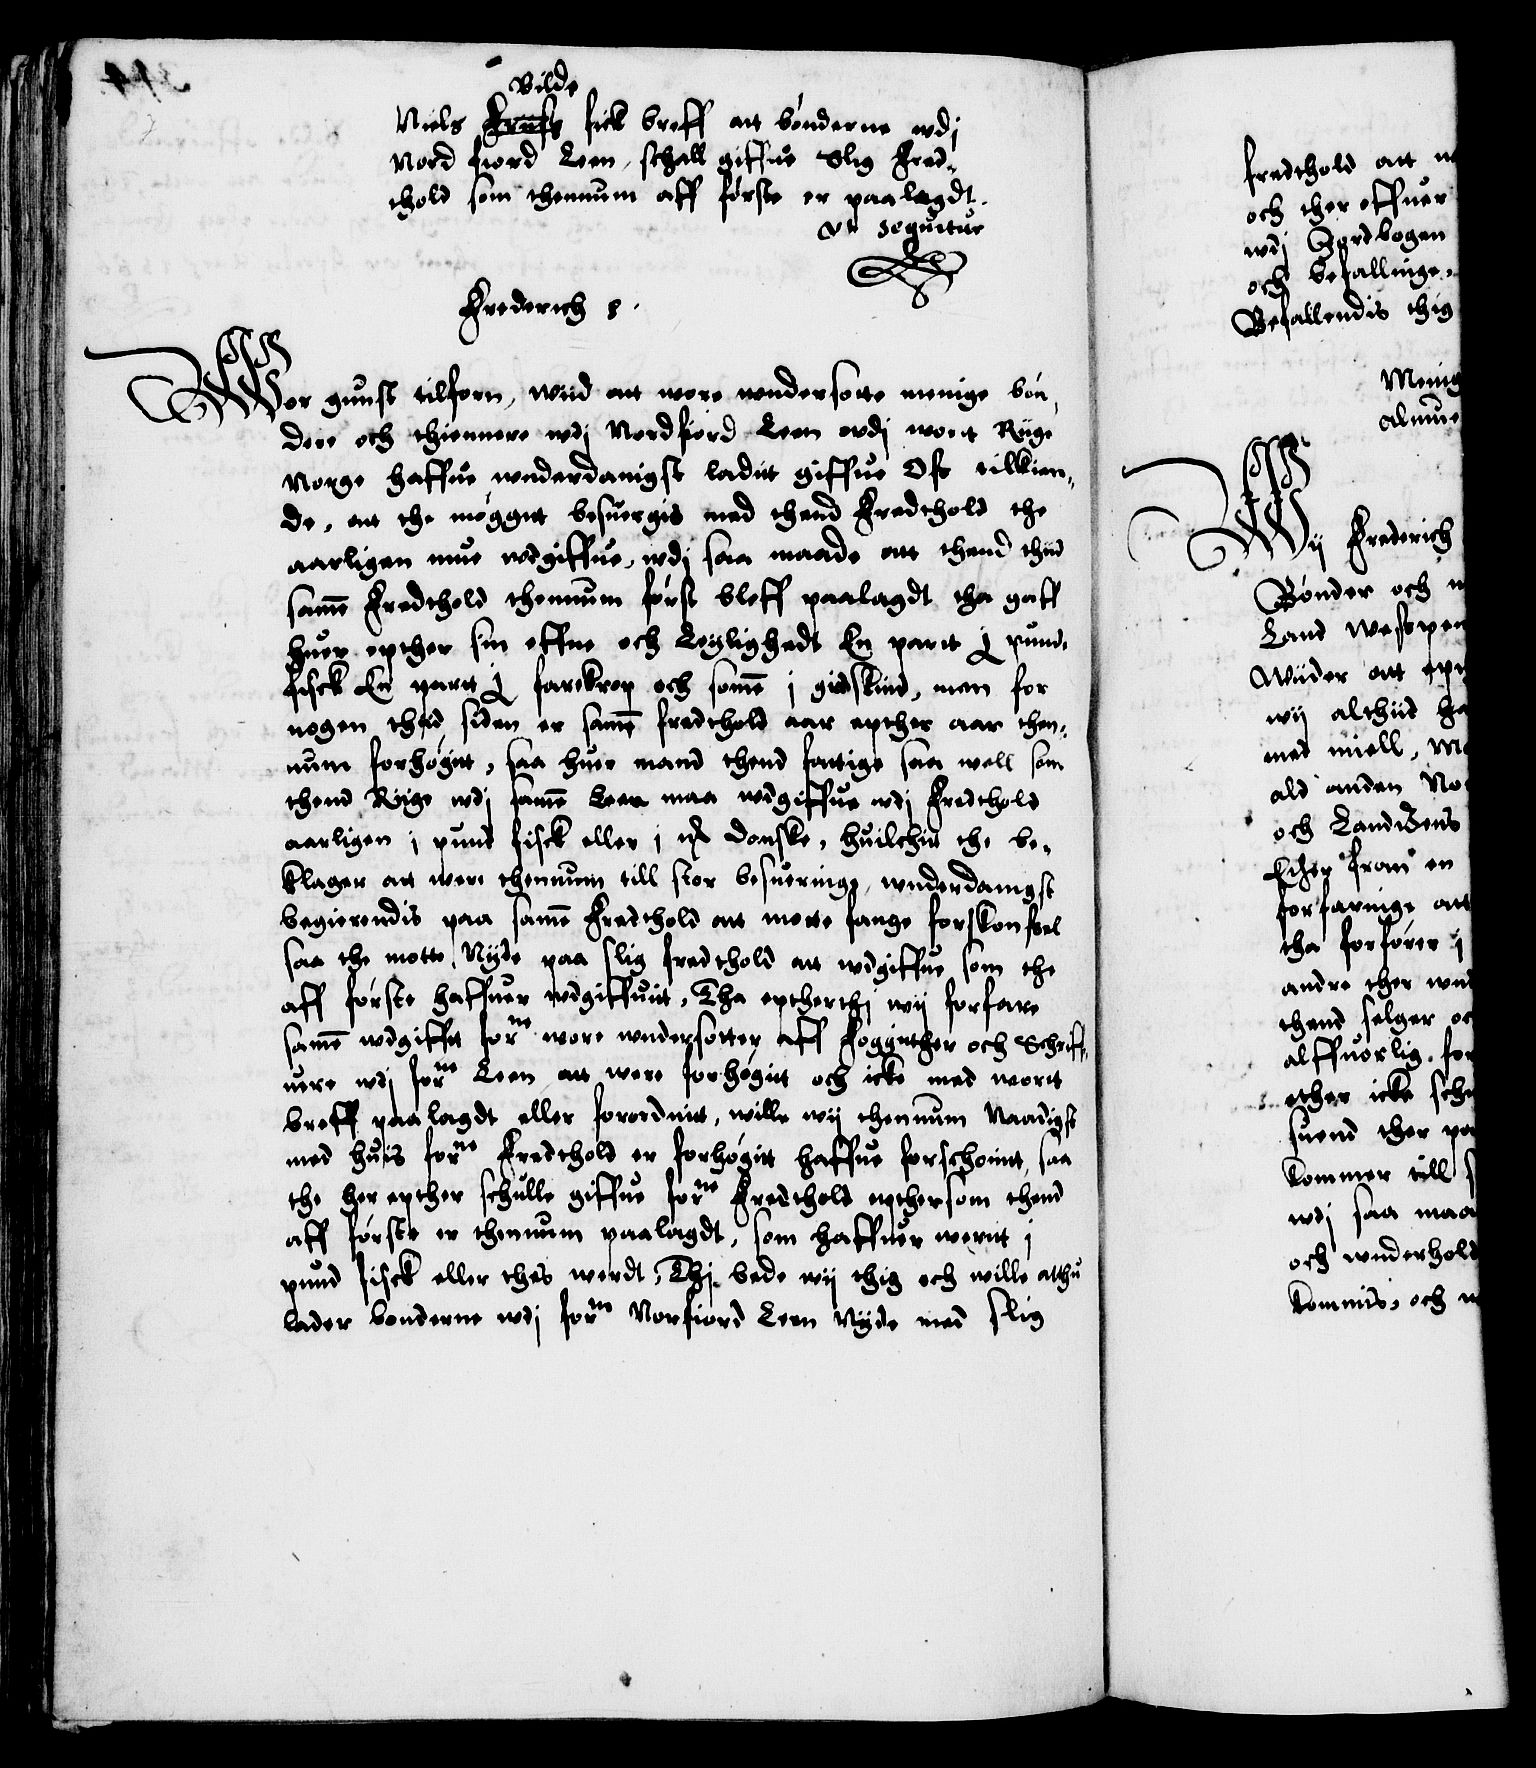 Bilde
Niels Krusß fick breff att bønderne wdj
Nord fiord Leen, schall giffue slig Fred-
thold som thennum aff første er paalagdt.
vt seguitur
Frederich 2.
Wor gunst tilforn, wiid att wore wndersotte menige bøn
dere och thiennere wdj Nordfiord Leen wdj wortt Riige
Norge haffue wnderdanigst ladett giffue Oß tilkien,,
de, att the møggitt besuergis med thend Fredthold the
aarligen mue wdgiffue, wdj saa maade att thend thiid
samme Fredthold thennum først bleff paalagdt tha gaff
huer epther sin effne och Leylighedt En partt j pund
fisck En partt j farekrop och somme j gedskind, men for
nogen thiid siden er samme fredthold aar epther aar then,,
num forhøgitt, saa huer mand thend fattige saa well som
thend Riige wdj samme Leen maa wdgiffue wdj Fredthold
aarligen j pund fisck eller j mk danske, huilchit the be,
klager att were thennum till stor besueringe, wnderdanigst
begierendis paa samme Fredthold att motte fange forskonsel
saa the motte Nyde paa slig fredthold att wdgiffue som the
aff første haffuer wdgiffuit, Tha eptherthj wij forfare
samme wdgifft forne wore wndersotter aff Foggether och Schriff,
uere wdj forne Leen att were forhøgitt och icke med wortt
breff paalagdt eller forordnitt, wille wij thennum Naadigst
med huis forne Fredthold er forhøgitt haffue forschonitt, saa
the her epther schulle giffue forne Fredthold epthersom thend
aff første er thennum paalagdt, som haffuer weritt j
pund fisck eller thes werdt, Thj bede wij thig och wille atthu
lader bønderne wdj forne Norfiord Leen Nyde med slig
fredthold att
och ther offuer
wdj Jordbogen
och befallinge.
Befallendis thig
Menig
almue
Wij Frederich
Bønder och
Land
Wiider att
wij althiid
med
ald anden
och Landsens
fran en
forfaringe att
tha forfører j
andre ther
thend selger
alffuorlig
ether icke
suend ther
kommer till
wdj saa maa
och wnderhold
komnis, och